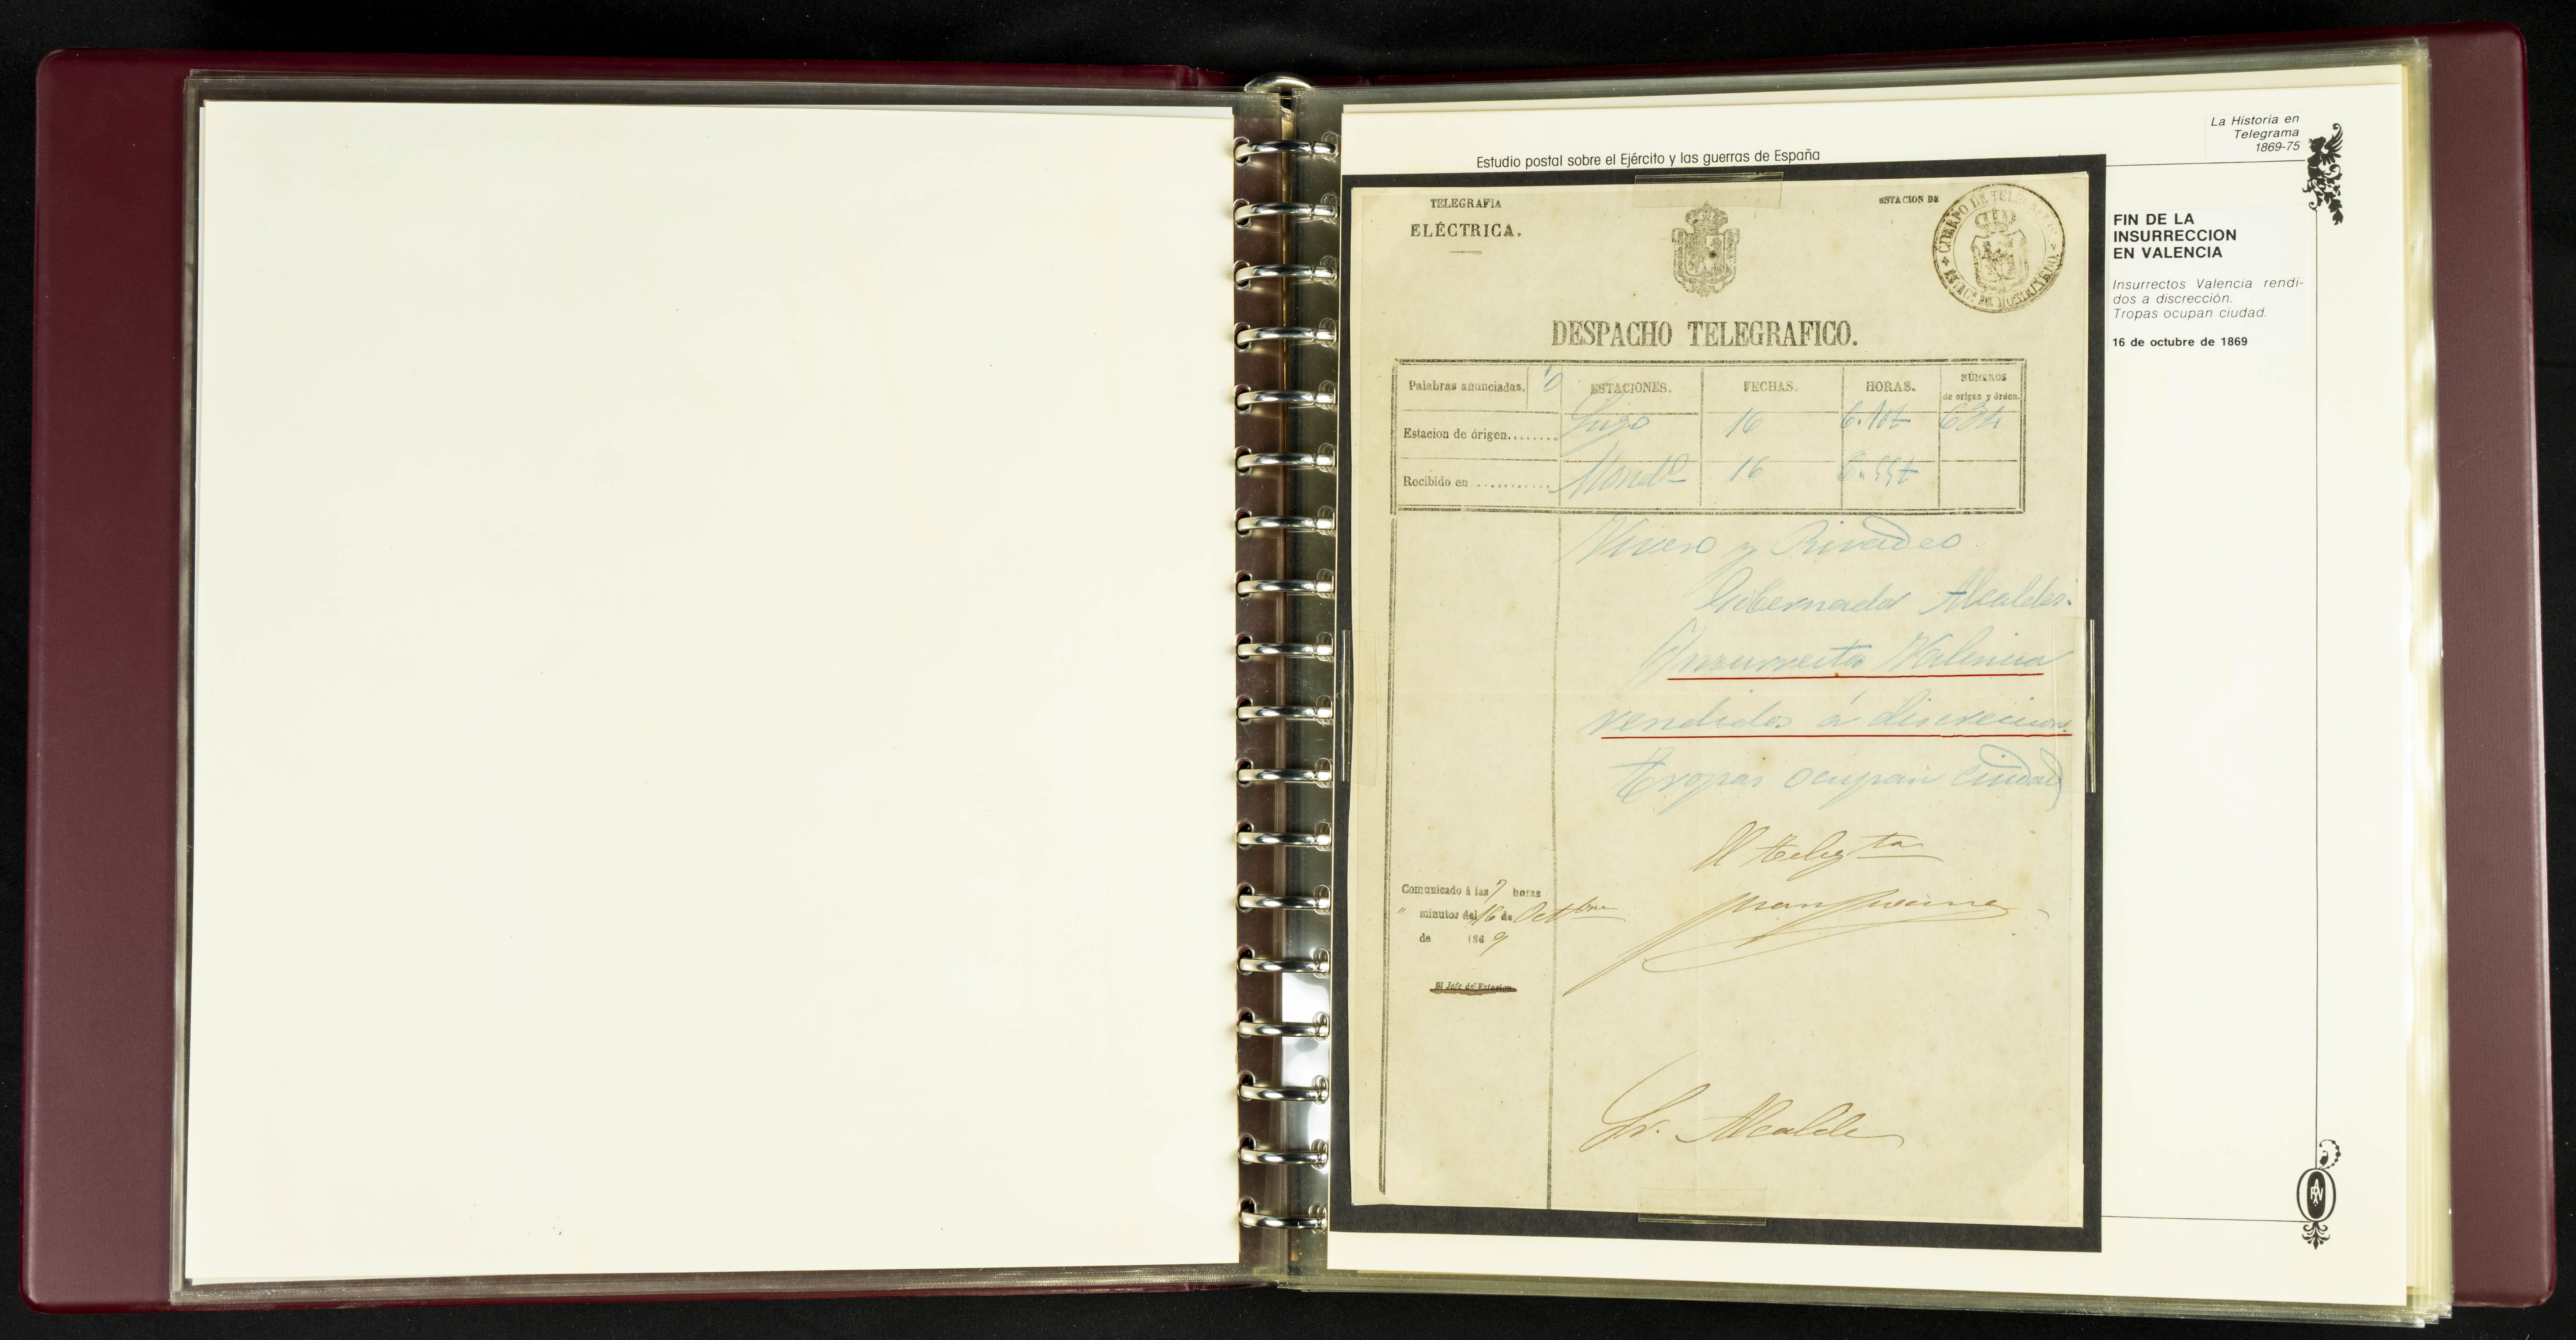 La Historia en
Telegrama
1869-75
Estudio postal sobre el Ejército y las guerras de España
FIN DE LA
INSURRECCION
EN VALENCIA
Insurrectos Valencia rendi-
dos a discrección.
Tropas ocupan ciudad.
16 de octubre de 1869
TELEGRAFIA
ELÉCTRICA.
ESTACION DE
CUERPO DE
DESPACHO TELEGRAFICO.
Palabras anunciadas. 10 ESTACIONES. FECHAS. HORAS. NÚMEROS
de origen y órden.
Estacion de órigen........ Lugo 16 634
Recibido en ........... Mondº 16
Vivero y Rivadeo
Gobernador Alcaldes.
Insurrectos Valencia
rendidos á discrecion.
Tropas ocupan ciudad
El Telegta
Comunicado á las 7 horas
" minutos del 16 de Octbre
de 1869
El Jefe de Estacion
Sr. Alcalde